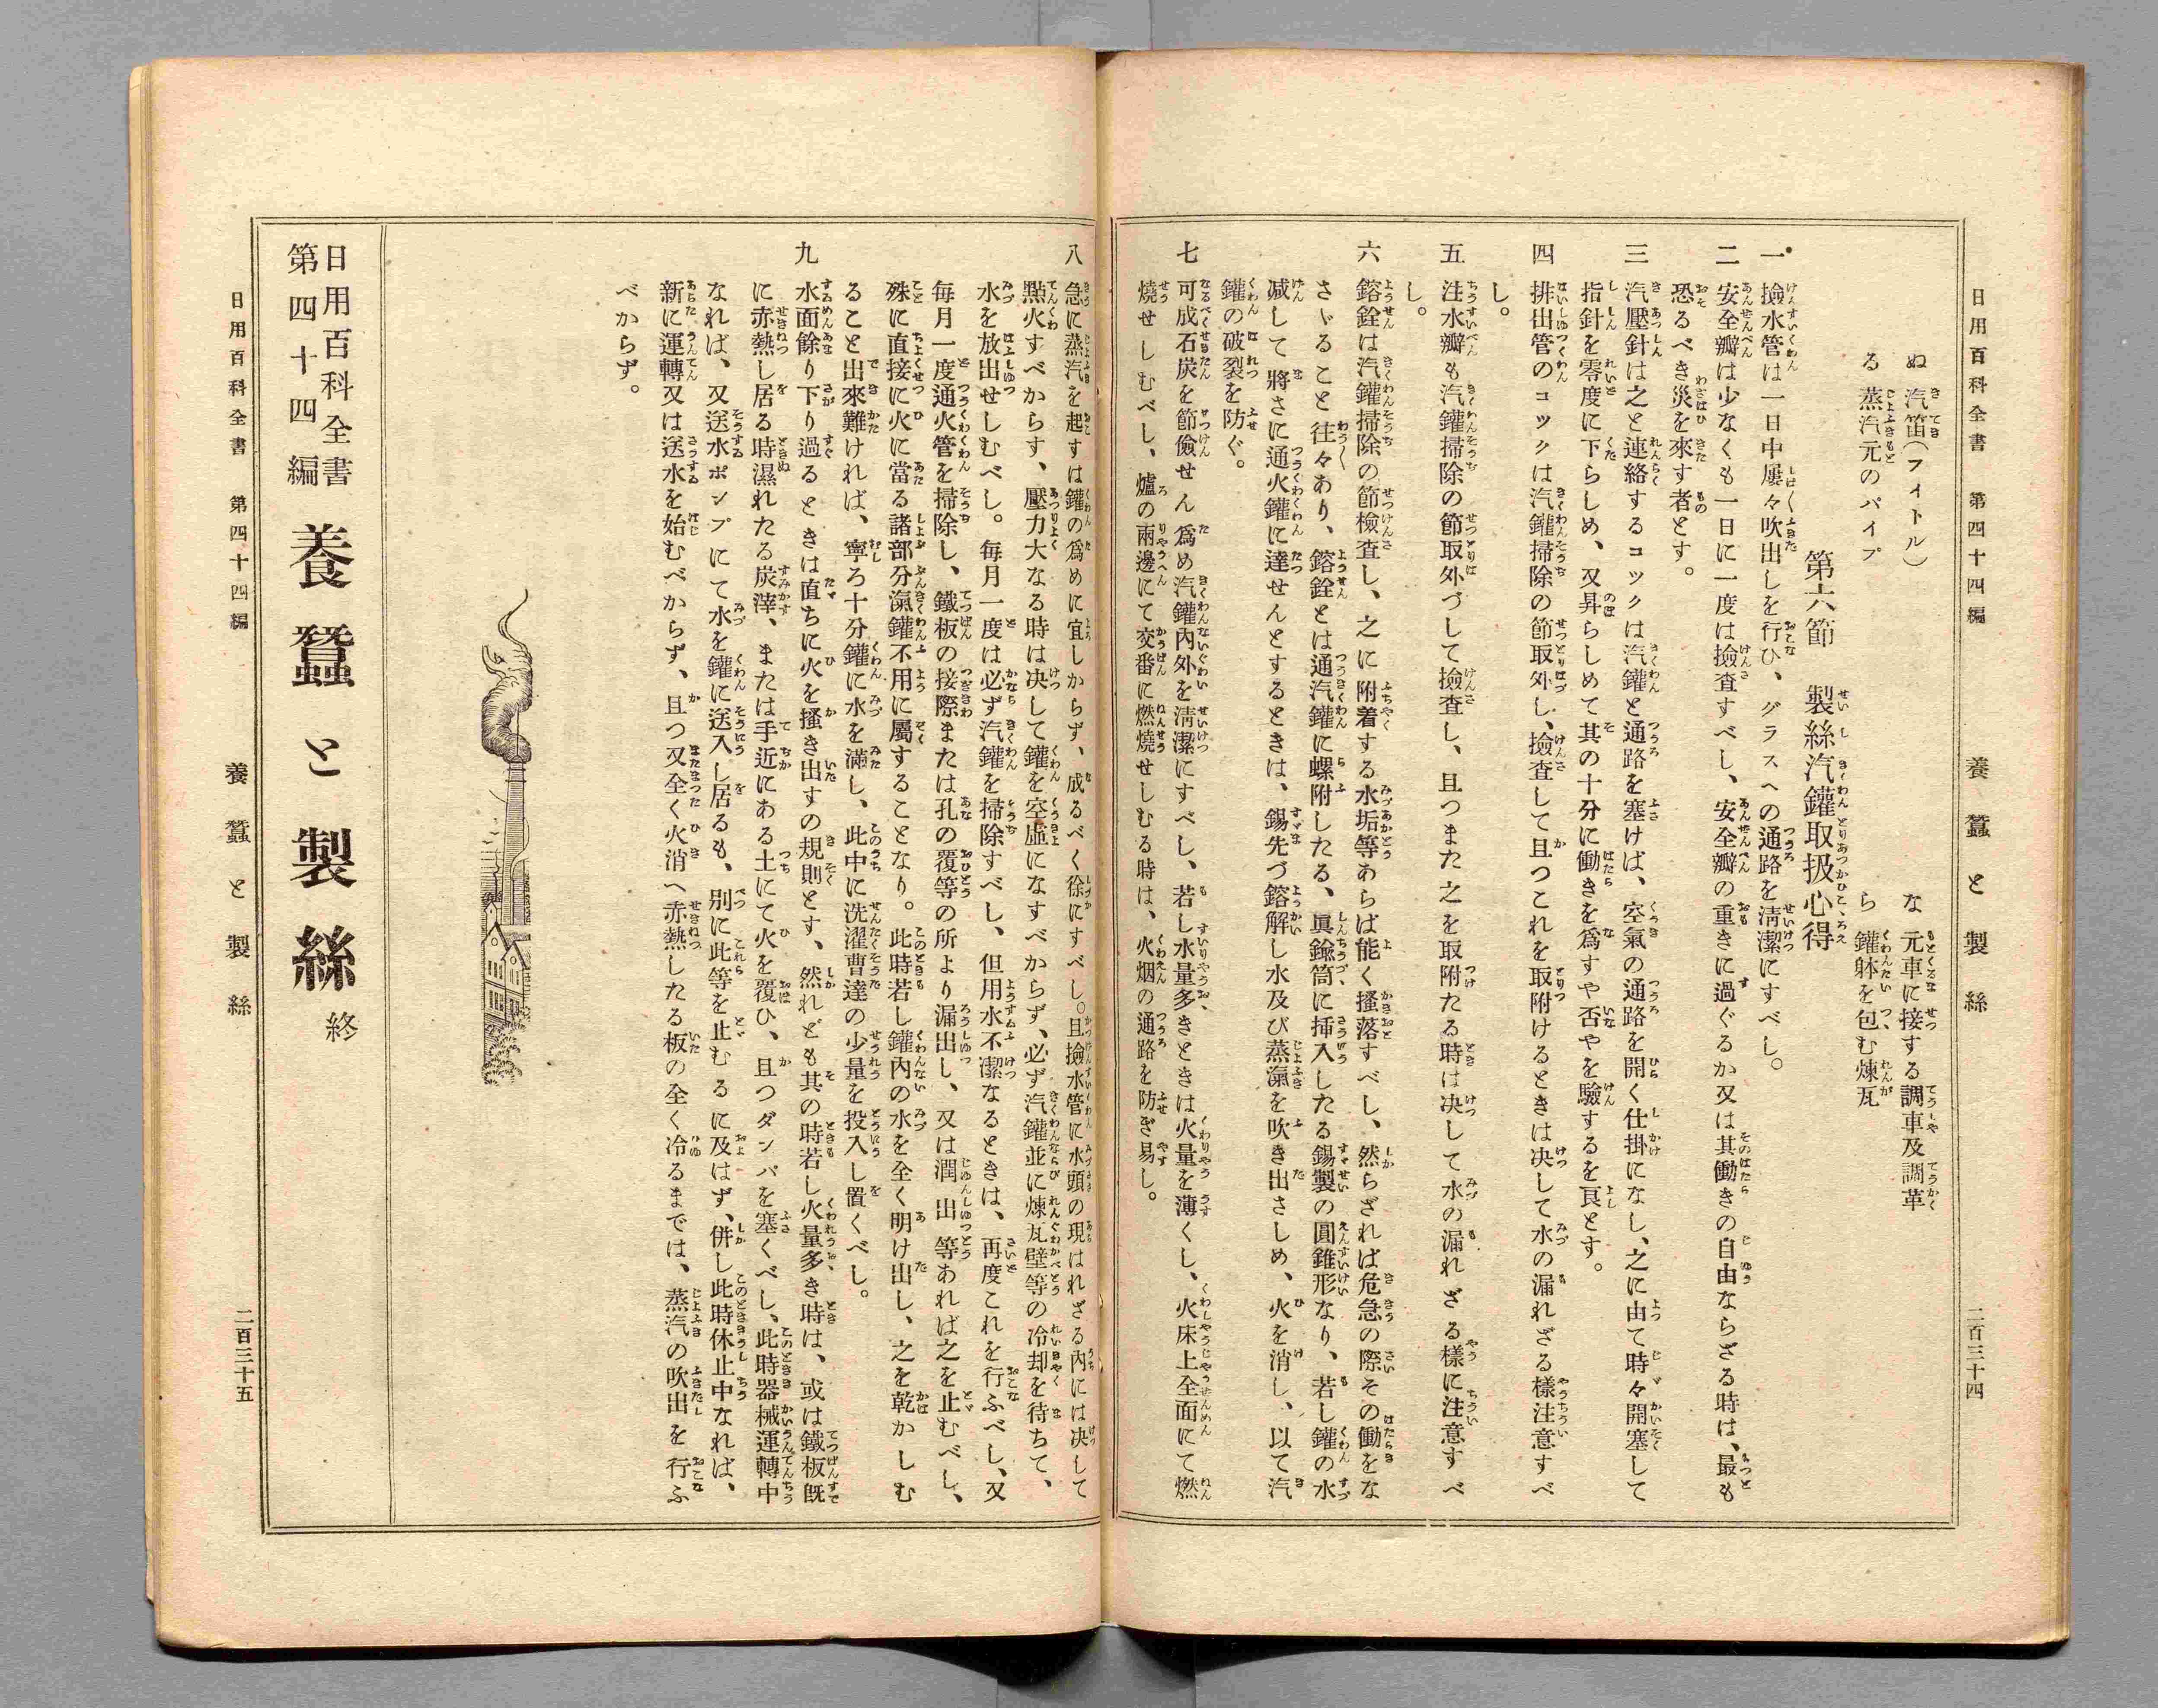 日用百科全書　第四十四編　養蠶と製絲　二百三十四
ぬ　汽笛(フイトル)　な　元車に接する調車及調革
る　蒸汽元のパイプ　ら　鑵躰を包む煉瓦
第六節　製絲汽鑵取扱心得
一　撿水管は一日中屢々吹出しを行ひ、グラスへの通路を淸潔にすべし。
二　安全瓣は少なくも一日に一度は撿査すべし、安全瓣の重きに過ぐるか又は其働きの自由ならざる時は、最も
恐るべき災を來す者とす。
三　汽壓針は之と連絡するコックは汽鑵と通路を塞けば、空氣の通路を開く仕掛になし、之に由て時々開塞して
指針を零度に下らしめ、又昇らしめて其の十分に働きを爲すや否やを驗するを良とす。
四　排出管のコックは汽鑵掃除の節取外し、撿査して且つこれを取附けるときは决して水の漏れざる樣注意すべ
し。
五　注水瓣も汽鑵掃除の節取外づして撿査し、且つまた之を取附たる時は决して水の漏れざる樣に注意すべ
し。
六　鎔銓は汽鑵掃除の節檢査し、之に附着する水垢等あらば能く搔落すべし、然らざれば危急の際その働をな
さゞること往々あり、鎔銓とは通汽鑵に螺附したる、眞鍮筒に挿入したる錫製の圓錐形なり、若し鑵の水
减して將さに通火鑵に達せんとするときは、錫先づ鎔解し水及び蒸瀛を吹き出さしめ、火を消し、以て汽
鑵の破裂を防ぐ。
七　可成石炭を節儉せん爲め汽鑵內外を淸潔にすべし、若し水量多きときは火量を薄くし、火床上全面にて燃
燒せしむべし、爐の兩邊にて交番に燃燒せしむる時は、火烟の通路を防ぎ易し。
八　急に蒸汽を起すは鑵の爲めに宜しからず、成るべく徐にすべし。且撿水管に水頭の現はれざる內には决して
點火すべからす、壓力大なる時は决して鑵を空虛になすべからず、必ず汽鑵並に煉瓦壁等の冷却を待ちて、
水を放出せしむべし。每月一度は必ず汽鑵を掃除すべし、但用水不潔なるときは、再度これを行ふべし、又
每月一度通火管を掃除し、鐵板の接際または孔の覆等の所より漏出し、又は潤出等あれば之を止むべし、
殊に直接に火に當る諸部分瀛鑵不用に屬することなり。此時若し鑵內の水を全く明け出し、之を乾かしむ
ること出來難ければ、寧ろ十分鑵に水を滿し、此中に洗濯曹達の少量を投入し置くべし。
九　水面餘り下り過るときは直ちに火を搔き出すの規則とす、然れども其の時若し火量多き時は、或は鐵板旣
に赤熱し居る時濕れたる炭滓、または手近にある土にて火を覆ひ、且つダンパを塞くべし、此時器械運轉中
なれば、又送水ポンプにて水を鑵に送入し居るも、別に此等を止むるに及はず、併し此時休止中なれば、
新に運轉又は送水を始むべからず、且つ又全く火消へ赤熱したる板の全く冷るまでは、蒸汽の吹出を行ふ
べからず。
日用百科全書
第四十四編　養蠶と製絲　終
日用百科全書　第四十四編　養蠶と製絲　二百三十五